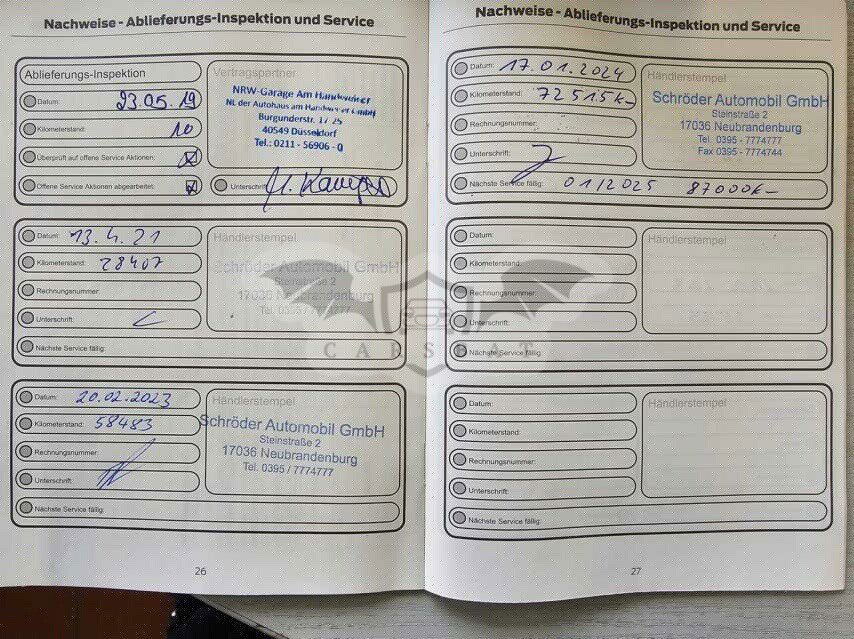 Nachweise - Ablieferungs-Inspektion und Service
Ablieferungs-Inspektion
Datum: 23.05.19
Kilometerstand: 10
Überprüft auf offene Service Aktionen:
Offene Service Aktionen abgearbeitet:
Vertragspartner
NRW-Garage Am Handweiser
NL der Autohaus am Handweiser GmbH
Burgunderstr.
40549 Düsseldorf
Tel.: 0211 - 56906 - 0
Unterschrift
Datum: 13.4.21
Kilometerstand: 28407
Rechnungsnummer:
Unterschrift:
Nächste Service fällig:
Händlerstempel
Schröder Automobil GmbH
Steinstraße 2
17036 Neubrandenburg
Tel. 0395 / 7774777
CARSBAT
Datum: 20.02.2023
Kilometerstand: 58483
Rechnungsnummer:
Unterschrift:
Nächste Service fällig:
Händlerstempel
Schröder Automobil GmbH
Steinstraße 2
17036 Neubrandenburg
Tel. 0395 / 7774777
26
Nachweise - Ablieferungs-Inspektion und Service
Datum: 17.01.2024
Kilometerstand: 72515k
Rechnungsnummer:
Unterschrift:
Nächste Service fällig: 01/2025 87000k
Händlerstempel
Schröder Automobil GmbH
Steinstraße 2
17036 Neubrandenburg
Tel. 0395 - 7774777
Fax 0395 - 7774744
Datum:
Kilometerstand:
Rechnungsnummer:
Unterschrift:
Nächste Service fällig:
Händlerstempel
Datum:
Kilometerstand:
Rechnungsnummer:
Unterschrift:
Nächste Service fällig:
Händlerstempel
27